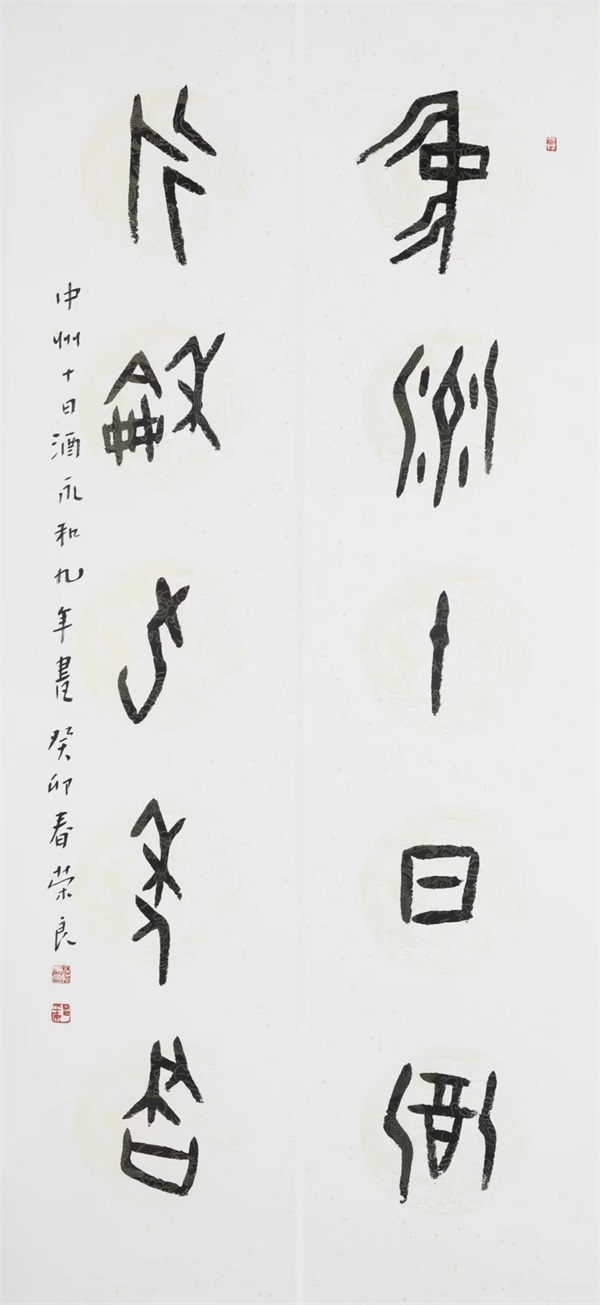 中州十日酒
永和九年書
中州十日酒永和九年書 癸卯春荣良